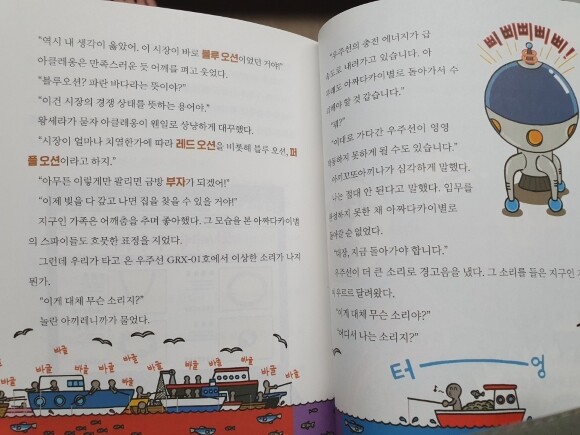 "역시 내 생각이 옳았어. 이 시장이 바로 블루 오션이었던 거야!"
아클레옹은 만족스러운 듯 어깨를 펴고 웃었다.
"블루오션? 파란 바다라는 뜻이야?"
"이건 시장의 경쟁 상태를 뜻하는 용어야."
왕세라가 묻자 아클레옹이 웬일로 상냥하게 대꾸했다.
"시장이 얼마나 치열한가에 따라 레드 오션을 비롯해 블루 오션, 퍼
플 오션이라고 하지."
"아무튼 이렇게만 팔리면 금방 부자가 되겠어!"
"이제 빚을 다 갚고 나면 집을 찾을 수 있을 거야!"
지구인 가족은 어깨춤을 추며 좋아했다. 그 모습을 본 아짜다카이별
의 스파이들도 흐뭇한 표정을 지었다.
그런데 우리가 타고 온 우주선 GRX-01호에서 이상한 소리가 나지
뭔가.
"이게 대체 무슨 소리지?"
놀란 아끼레니까가 물었다.
바글 바글 바글 바글 바글 바글 바글 바글 바글
"우주선의 충전 에너지가 급
속도로 내려가고 있습니다. 아
무래도 아짜다카이별로 돌아가서 수
리해야 할 것 같습니다."
"이대로 가다간 우주선이 영영
작동하지 못하게 될 수도 있습니다."
아끼꼬또아끼나가 심각하게 말했다.
나는 절대 안 된다고 말했다. 임무를
완성하지 못한 채 아짜다카이별로
돌아갈 순 없었다.
"대장, 지금 돌아가야 합니다."
우주선이 더 큰 소리로 경고음을 냈다. 그 소리를 들은 지구인 가
우르르 달려왔다.
"이게 대체 무슨 소리야?"
"어디서 나는 소리지?"
삐삐삐삐삐!
터 엉